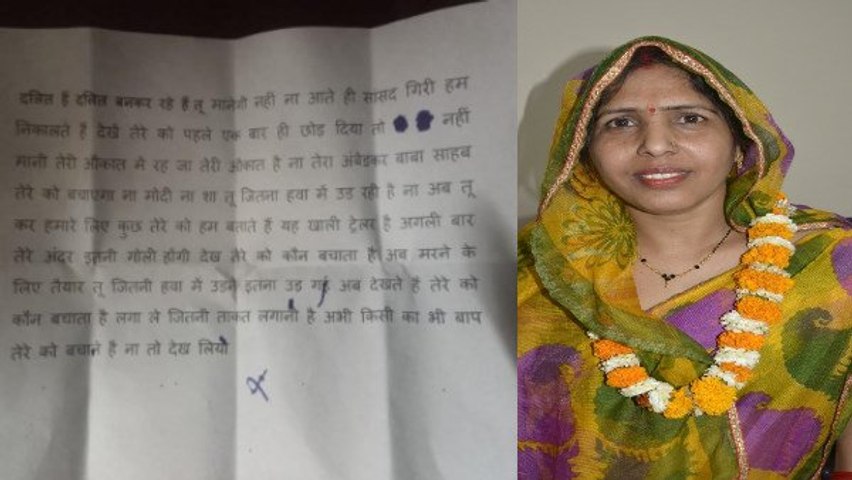 दलित है दलित बनकर रहे हैं तू मानेगी नहीं ना आते ही सासद गिरी हम
निकालते है देख तेरे को पहले एक बार ही छोड दिया तो नहीं
मानी तेरी औकात में रह जा तेरी औकात है ना तेरा अंबेडकर बाबा साहब
तेरे को बचाएगा ना मोदी ना शा तू जितना हवा में उड रही है ना अब तू
कर हमारे लिए कुछ तेरे को हम बताते हैं यह खाली ट्रेलर है अगली बार
तेरे अंदर इतनी गोली होंगी देख तेरे को कौन बचाता है अब मरने के
लिए तैयार तू जितनी हवा में उडने इतना उड गई अब देखते हैं तेरे को
कौन बचाता है लगा ले जितनी ताकत लगानी है अभी किसी का भी बाप
तेरे को बचाने है ना तो देख लियो